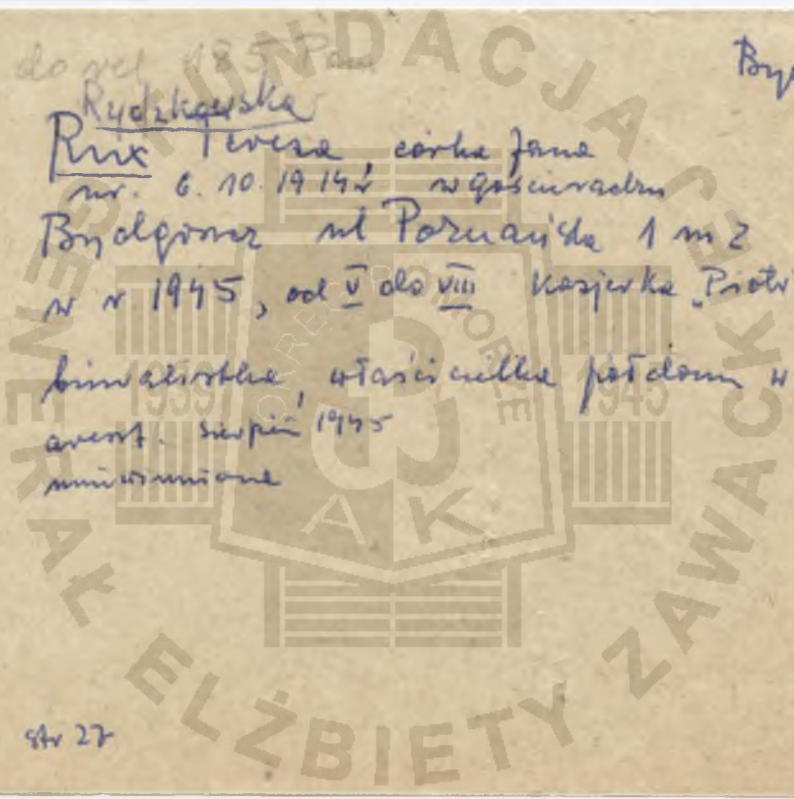 do rel. 185 Pom
Byd
Rydzkowska
Rux Teresa, córka Jana
ur. 6.10.1914 r w Gościeradzu
Bydgoszcz ul Poznańska 1 m 2
w r 1945, od V do VIII kasjerka "Piotr
biuralistka, właścicielka pół domu w
areszt. sierpień 1945
uniewinniona
str 27
FUNDACJA GENERAŁ ELŻBIETY ZAWACKIEJ
OKRĘG POMORZE
1939 1945
AK